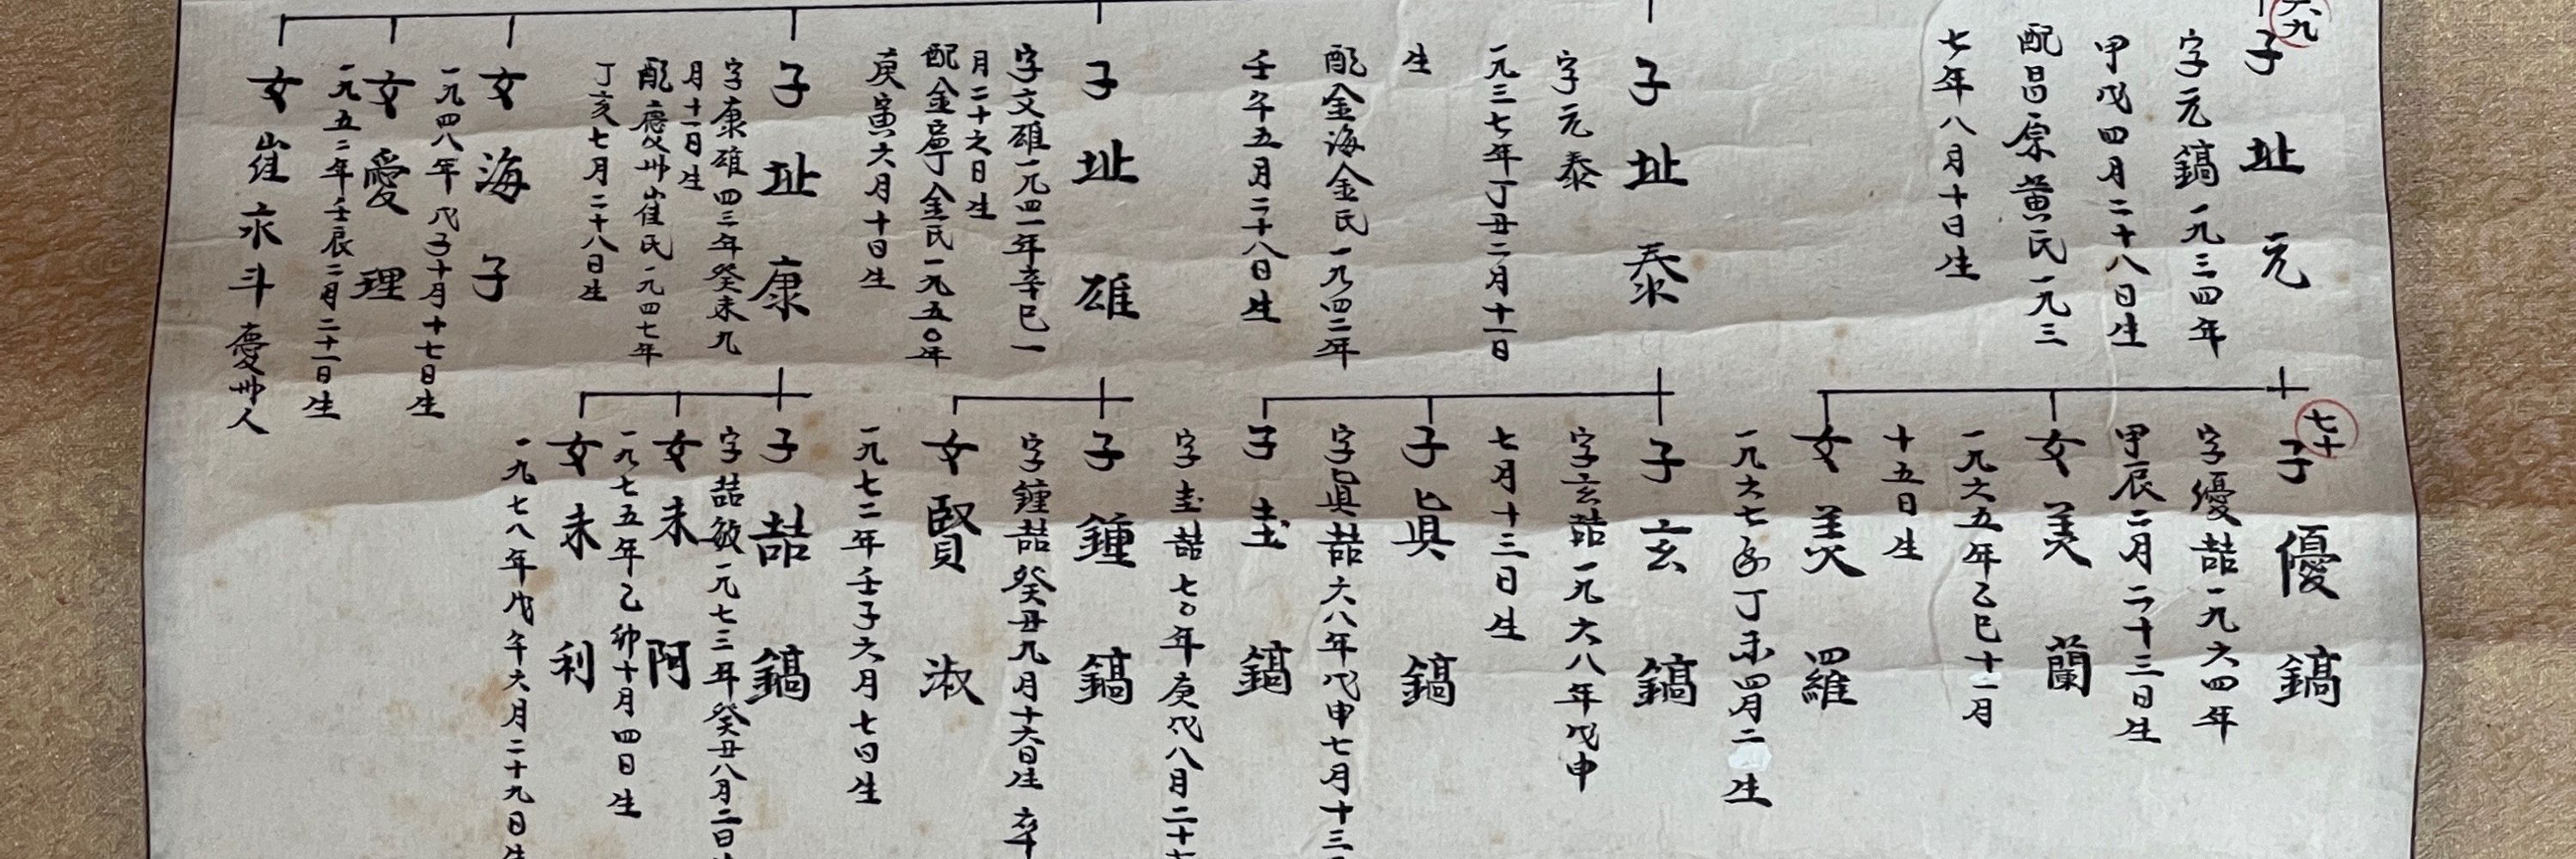 六九
子 址 元
字元鎬一九三四年
甲戊四月二十八日生
配昌原黄氏一九三
七年八月十日生
子 址 泰
字元泰
一九三七年丁丑二月十一日
生
配金海金氏一九四二年
壬午五月二十八日生
子 址 雄
字文雄一九四一年辛巳一
月二十六日生
配金寧金氏一九五〇年
庚寅六月十日生
子 址 康
字康雄四三年癸未九
月十一日生
配慶州崔氏一九四七年
丁亥七月二十八日生
女 海 子
一九四八年戊子十月十七日生
女 愛 理
一九五二年壬辰二月二十一日生
女 崔永斗 慶州人
七十
子 優 鎬
字優喆一九六四年
甲辰二月二十三日生
女 美 蘭
一九六五年乙巳十一月
十五日生
女 美 羅
一九六七 丁未四月二 生
子 玄 鎬
字玄喆一九六八年戊申
七月十三日生
子 眞 鎬
字眞喆六八年戊申七月十三
子 圭 鎬
字圭喆七〇年庚戊八月二十
子 鍾 鎬
字鍾喆癸丑九月十六日生 卒
女 賢 淑
一九七二年壬子六月七日生
子 喆 鎬
字喆敏一九七三年癸丑八月二日
女 未 阿
一九七五年乙卯十月四日生
女 未 利
一九七八年戊午六月二十九日生